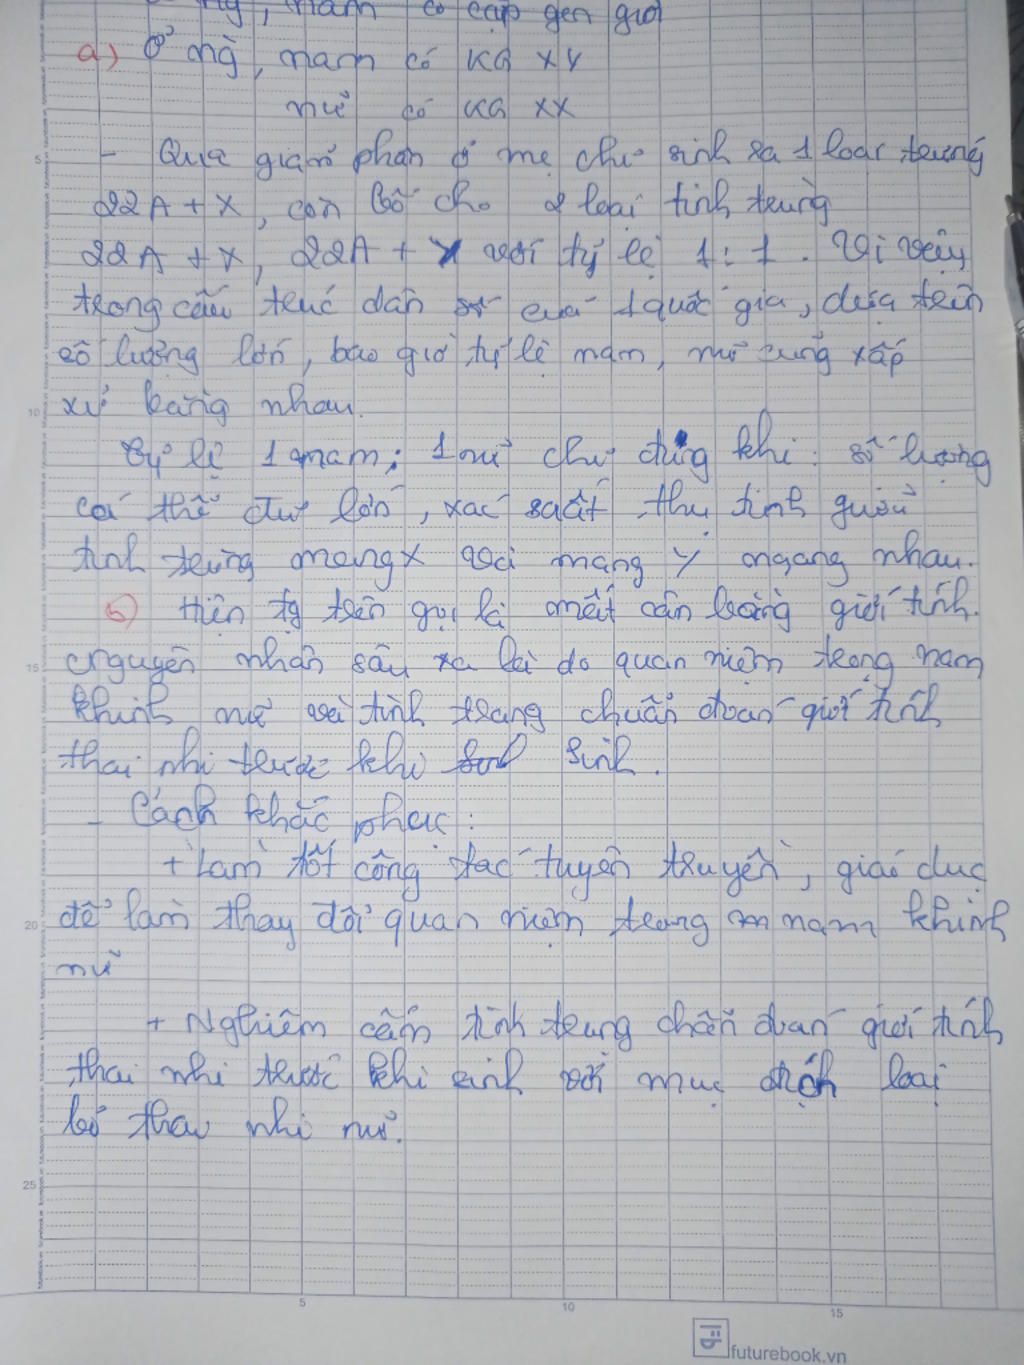 nam có cặp gen giới
a) Ở ng, nam có KG XY
nữ có KG XX
- Qua giảm phân ở mẹ chỉ sinh ra 1 loại trứng
22A + X, còn bố cho 2 loại tinh trùng
22A + X, 22A + Y với tỷ lệ 1:1. Vì vậy
trong cấu trúc dân số của 1 quốc gia, dựa trên
số lượng lớn, bao giờ tỷ lệ nam, nữ cũng xấp
xỉ bằng nhau.
Tỷ lệ 1 nam: 1 nữ chỉ đúng khi: số lượng
cá thể đủ lớn, xác suất thụ tinh giữa
tinh trùng mang X và mang Y ngang nhau.
b) Hiện tg trên gọi là mất cân bằng giới tính.
Nguyên nhân sâu xa là do quan niệm trọng nam
khinh nữ và tình trạng chuẩn đoán giới tính
thai nhi trước khi sinh.
- Cách khắc phục:
+ Làm tốt công tác tuyên truyền, giáo dục
để làm thay đổi quan niệm trọng nam khinh
nữ
+ Nghiêm cấm tình trung chẩn đoán giới tính
thai nhi trước khi sinh với mục đích loại
bỏ thai nhi nữ.
5
10
15
20
25
5
10
15
futurebook.vn